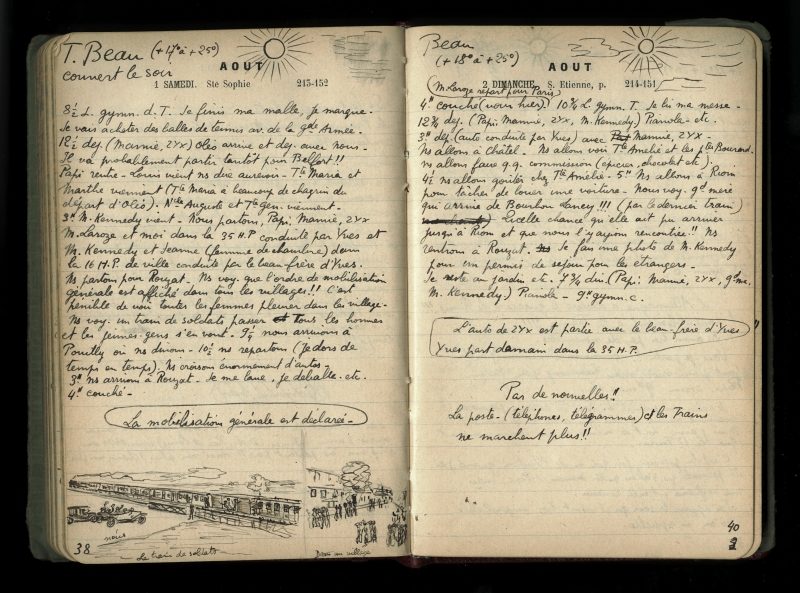 T. Beau (+17° à +25°)
couvert le soir
AOUT
1 SAMEDI. Ste Sophie 213-152
8½ L. gymn. d. T. Je finis ma malle, je marque.
Je vais acheter des balles de tennis av. de la gde Armée.
12½ déj. (Mamie, 2Yx) Oléo arrive et dej. avec nous.
Il va probablement partir tantôt pour Belfort!!
Papi rentre - Louis vient ns dire aurevoir - Tte Maria et
Marthe viennent (Tte Maria a beaucoup de chagrin du
départ d'Oléo). Nle Auguste et Tte Gen. viennent -
3h M. Kennedy vient - Nous partons, Papi, Mamie, 2Yx
M. Laroze et moi dans la 35 H.P conduite par Yves et
M. Kennedy et Jeanne (femme de chambre) dans
la 16 H.P. de ville conduite par le beau-frère d'Yves.
Ns partons pour Rouzat. Ns voy. que l'ordre de mobilisation
générale est affiché dans tous les villages!! C'est
penible de voir toutes les femmes pleurer dans les village -
Ns voy. un train de soldats passer et tous les hommes
et les jeunes gens s'en vont. 7½ nous arrivons à
Pouilly où ns dinons - 10½ ns repartons (Je dors de
temps en temps). Ns croisons enormement d'autos -
3h ns arrivons à Rouzat. Je me lave, je deballe. etc.
4h couché -
La mobilisation générale est déclarée -
nous
Le train de soldats
Dans un village
38
Beau
(+18° à +25°)
AOUT
2 DIMANCHE. S. Etienne, p. 214-151
(M. Laroze repart pour Paris)
4h couché (voir hier). 10¾ L. gymn T. Je lis ma messe -
12¾ dej. (Papi, Mamie, 2Yx, M. Kennedy) Pianola - etc.
3h dep. (auto conduite par Yves) avec Mamie, 2YX -
Ns allons à Châtel. Ns allons voir Tte Amélie et les pts Bourand.
ns allons faire q.q. commission (épicier, chocolat etc).
4½ ns allons goûter chez Tte Amélie - 5h Ns allons à Riom
pour tâcher de louer une voiture - Nous voy. gd mère
qui arrive de Bourbon Lancy!!! (par le dernier train)
Quelle chance qu'elle ait pu arriver
jusqu'à Riom et que nous l'y ayions rencontrée!! Ns
rentrons à Rouzat. Je fais une photo de M. Kennedy
pour un permis de sejour pour les étrangers -
Je reste au jardin etc. 7¾ din. (Papi, Mamie, 2Yx, gd me.
M. Kennedy) Pianola - 9h gymn. c.
L'auto de 2Yx est partie avec le beau-frère d'Yves
Yves part demain dans la 35 H.P.
Pas de nouvelles!!
La poste - (téléphones, télégrammes) et les Trains
ne marchent plus!!
40